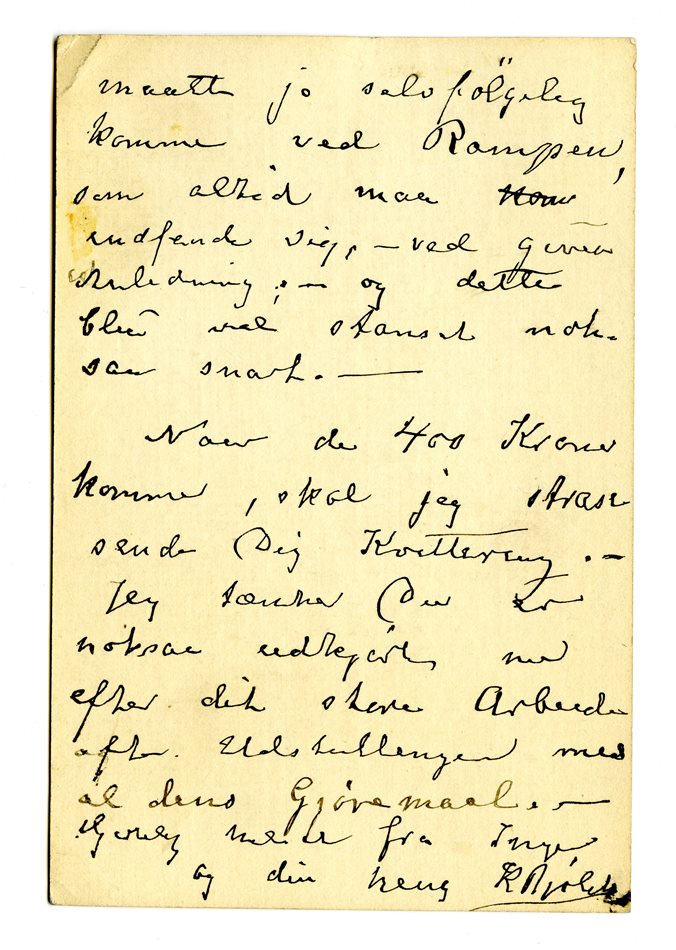 maatte jo selvfölgelig
komme ved Rampen,
som altid maa
indfinde sig, – ved given
Anledning; – og dette
blev vel stanset nok-
saa snart. —
Naar de 400 Kroner
kommer, skal jeg strax
sende Dig Kvittering. –
Jeg tænker Du er
noksaa udkjørt nu
efter dit store Arbeide
efter Udstillingen med
al dens Gjøremaal. –
Hjertelig hilsen fra Inga
og din heng